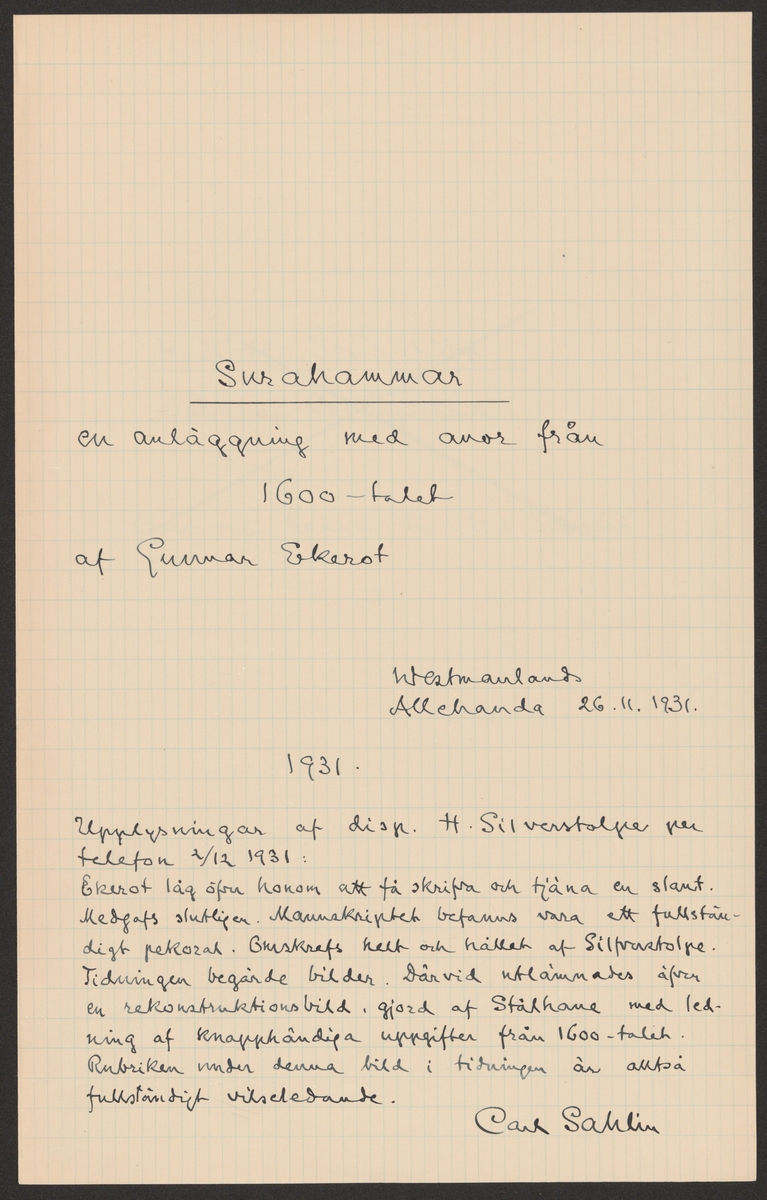 Surahammar
en anläggning med anor från
1600-talet
af Gunnar Ekerot
Westmanlands
Allehanda 26.11.1931.
1931.
Upplysningar af disp. H. Silverstolpe per
telefon 2/12 1931:
Ekerot låg öfver honom att få skrifva och tjäna en slant.
Medgafs slutligen. Manuskriptet befanns vara ett fullstän-
digt pekoral. Omskrefs helt och hållet af Silfverstolpe.
Tidningen begärde bilder. Därvid utlämnades äfven
en rekonstruktionsbild, gjord af Stålhane med led-
ning af knapphändiga uppgifter från 1600-talet.
Rubriken under denna bild i tidningen är alltså
fullständigt vilseledande.
Carl Sahlin